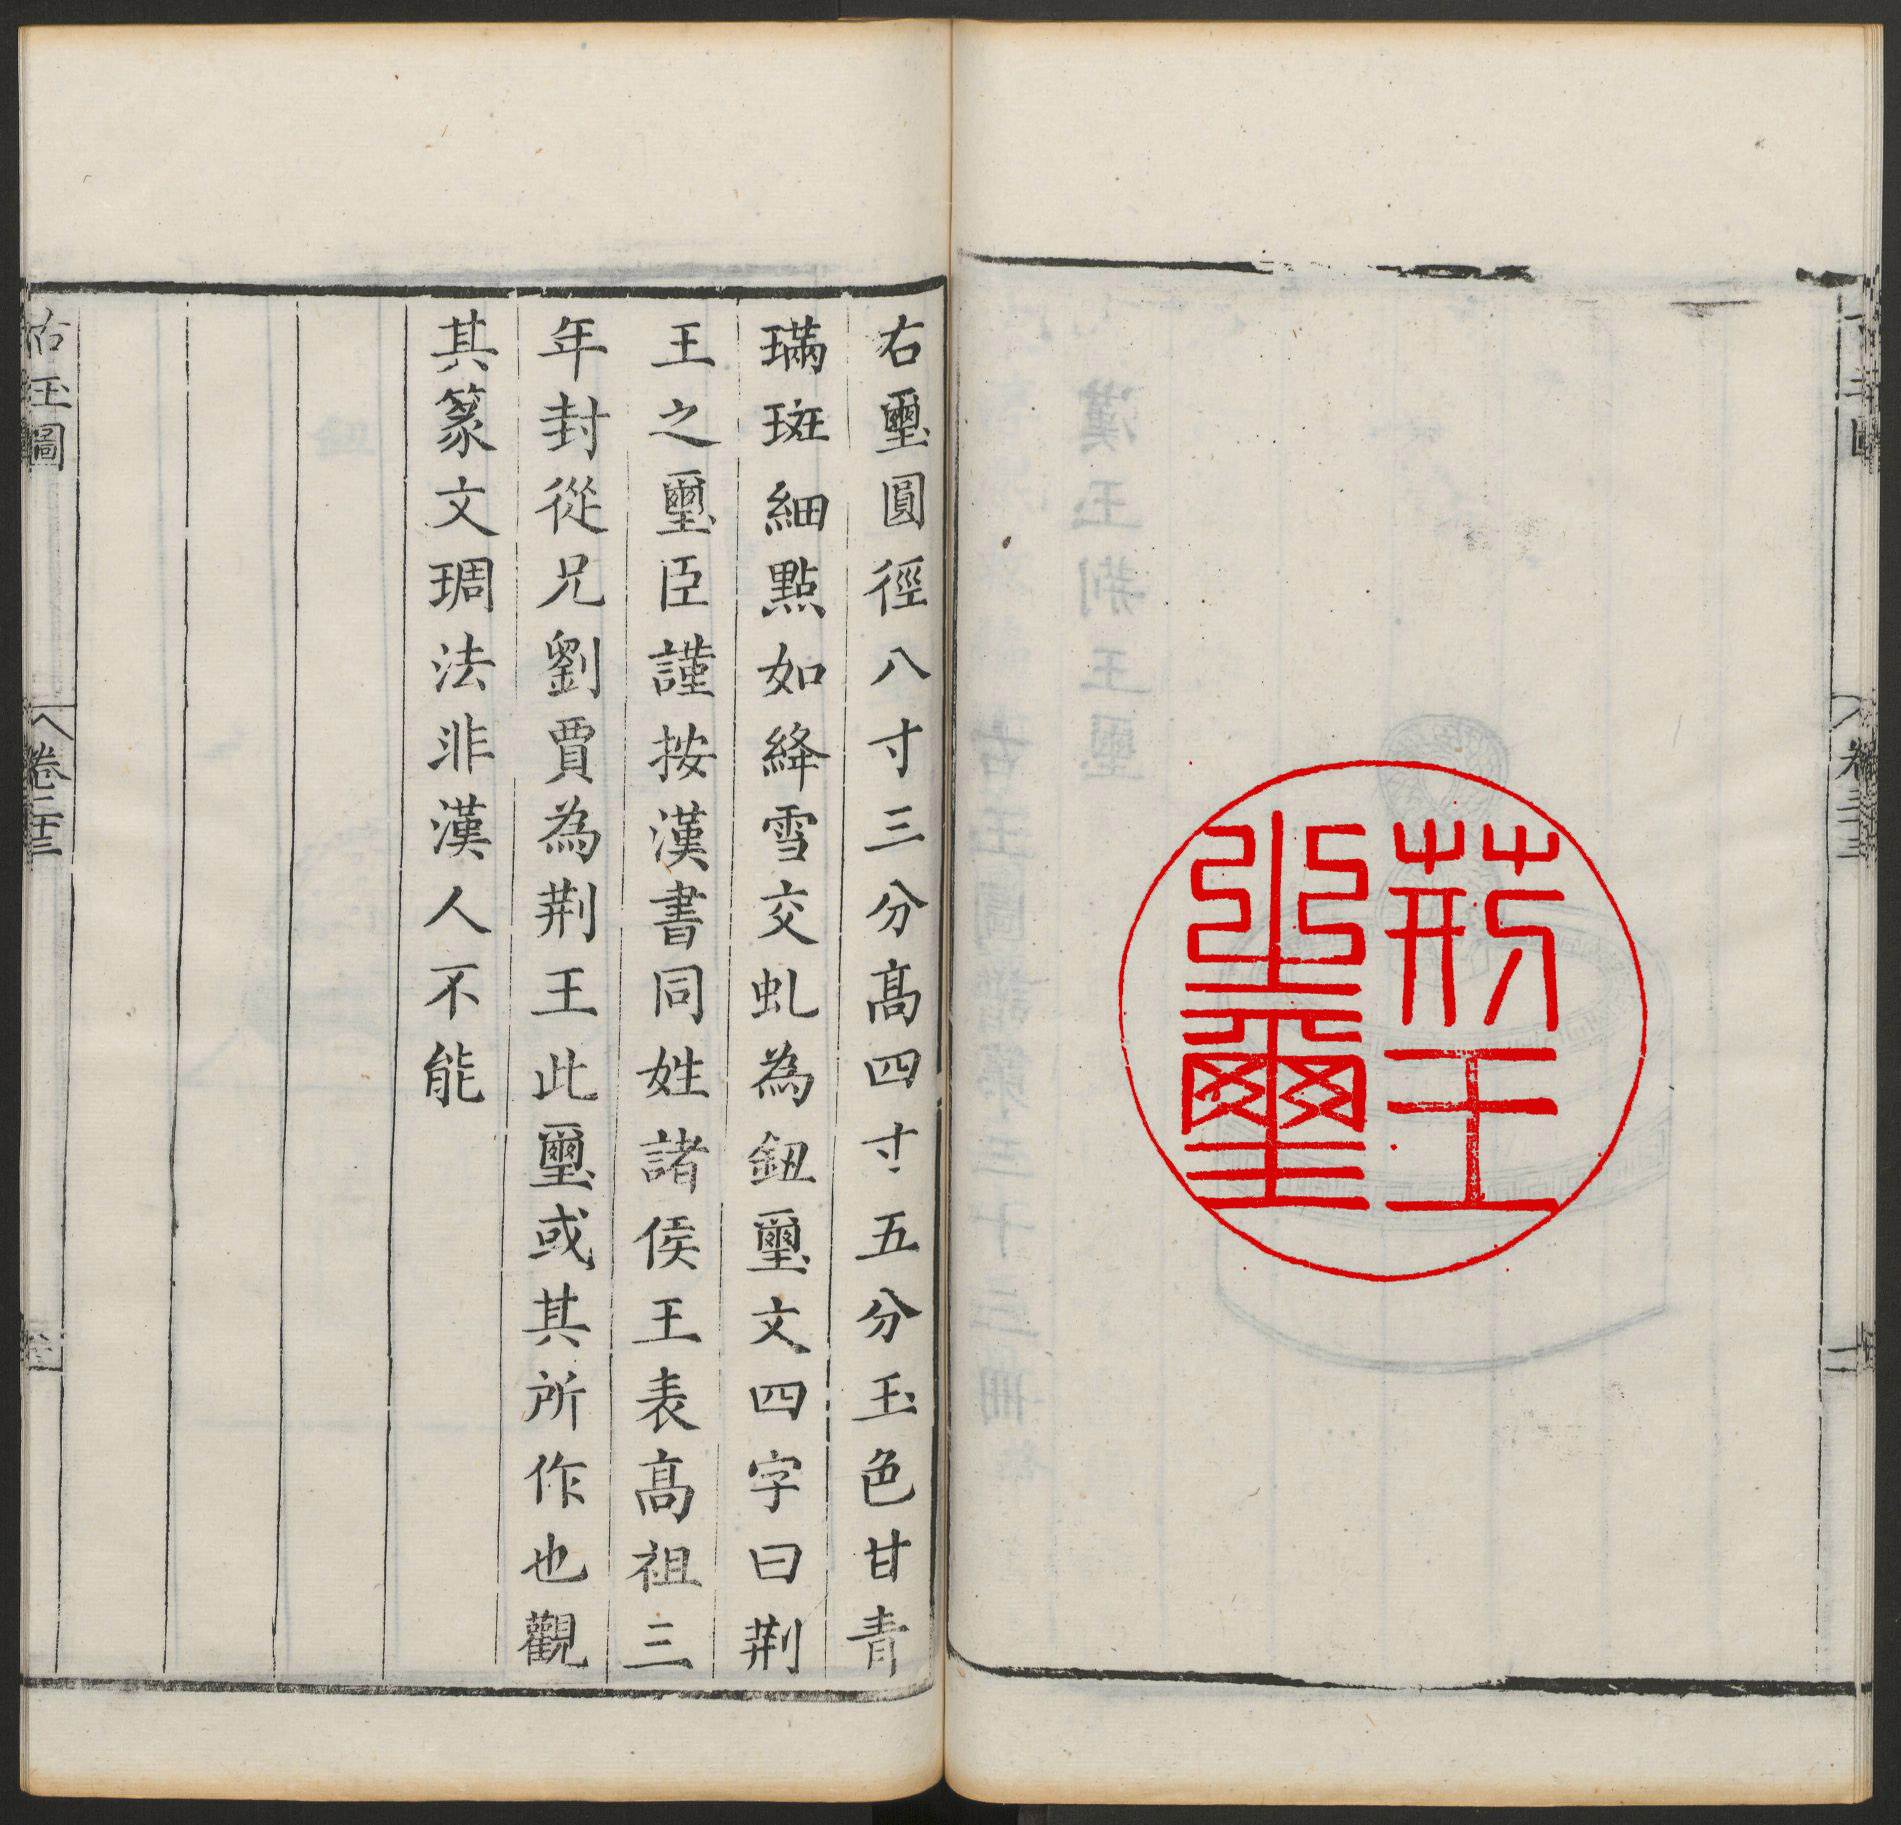 荊王
之璽
右璽圓徑八寸三分高四寸五分玉色甘青
璊斑細點如絳雪交虬為鈕璽文四字曰荆
王之璽臣謹按漢書同姓諸侯王表高祖三
年封從兄劉賈為荆王此璽或其所作也觀
其篆文琱法非漢人不能
古玉圖
卷二十三